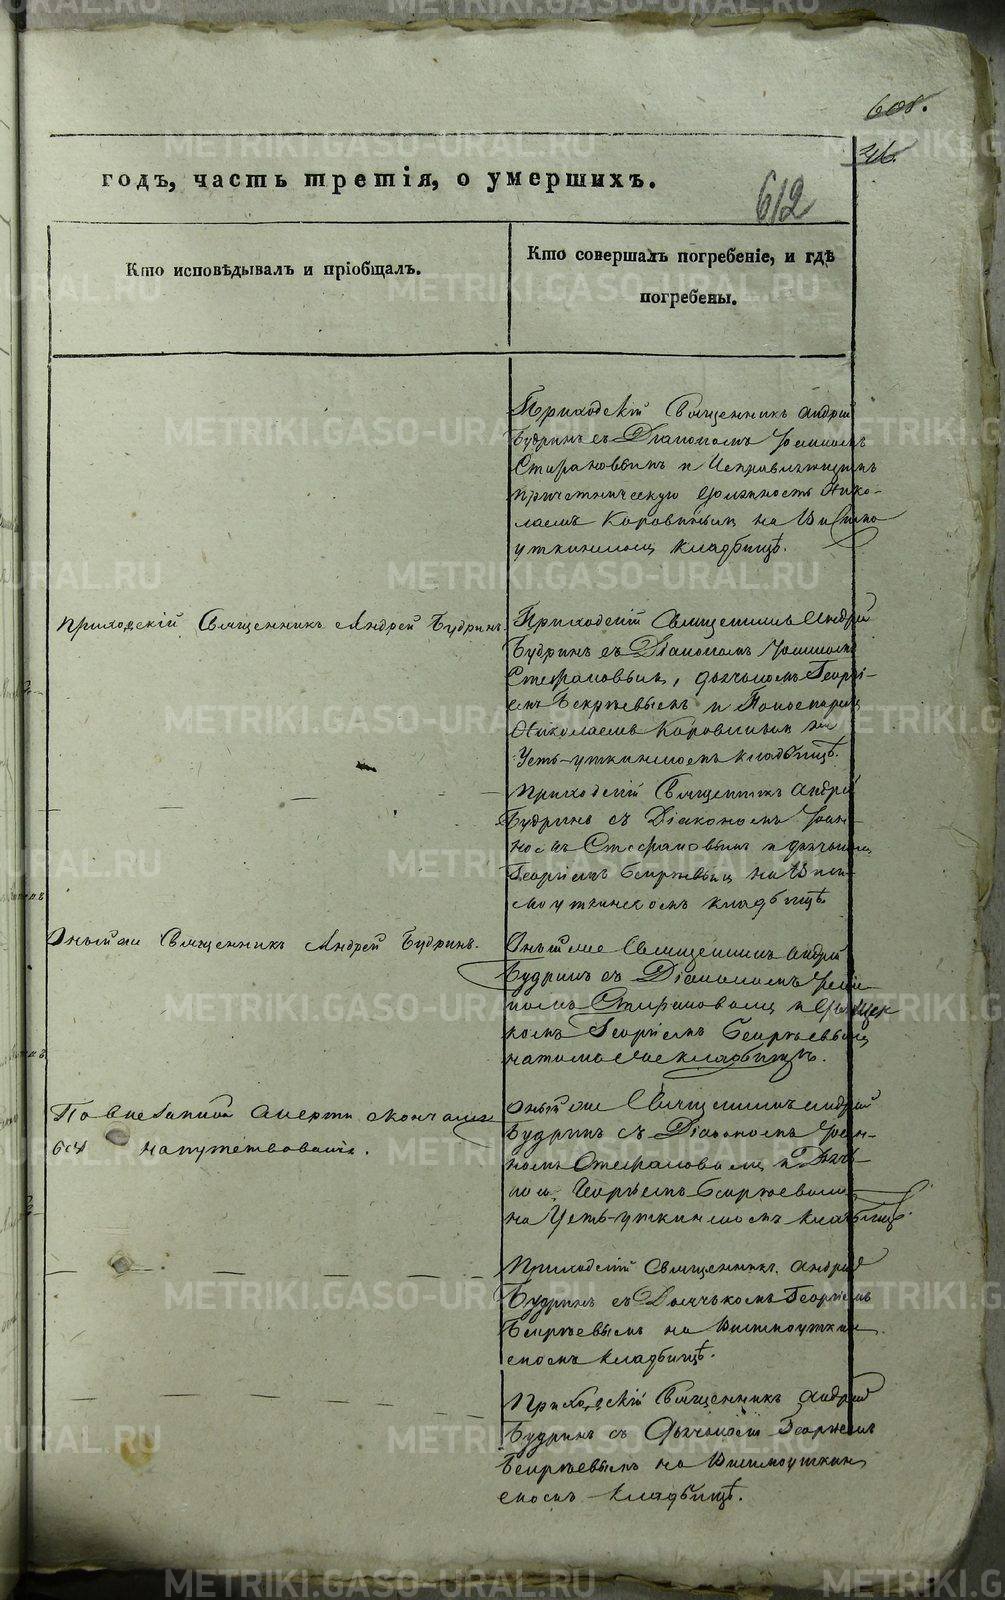 608.
годъ, часть третія, о умершихъ.
612
Кто исповѣдывалъ и пріобщалъ.
Кто совершалъ погребеніе, и гдѣ
погребены.
Приходскій Священникъ Андрей
Будринъ съ Діакономъ Іоанномъ
Стефановымъ и Исправляющимъ
причетническую должность Нико-
лаемъ Коровинымъ на Висимо
уткинскомъ кладбищѣ.
Приходскій Священникъ Андрей Будринъ.
Приходскій Священникъ Андрей
Будринъ съ Діакономъ Іоанномъ
Стефановымъ, дьячкомъ Георгі-
емъ и Пономаремъ
Николаемъ Коровинымъ на
Усть-уткинскомъ кладбищѣ.
Приходскій Священникъ Андрей
Будринъ съ Діакономъ Іоан-
номъ Стефановымъ и дьячкомъ
Георгіемъ на Виси-
моуткинскомъ кладбищѣ.
Онытже Священникъ Андрей Будринъ.
Онытже Священникъ Андрей
Будринъ съ Діакономъ Іоан-
номъ Стефановымъ и Дьяч
комъ Георгіемъ
на томже кладбищѣ.
По внезапной смерти скончался
безъ напутствованія.
Онытже Священникъ Андрей
Будринъ съ Діакономъ Іоан-
номъ Стефановымъ и Дьяч-
комъ Георгіемъ
на Усть-уткинскомъ кладбищѣ.
Приходскій Священникъ Андрей
Будринъ съ Дьячкомъ Георгіемъ
на Висимоуткин
скомъ кладбищѣ.
Приходскій Священникъ Андрей
Будринъ съ Дьячкомъ Георгіемъ
на Висимоуткин
скомъ кладбищѣ.
METRIKI.GASO-URAL.RU